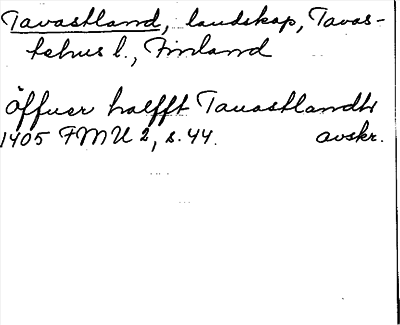 Tavastland, landskap, Tavas-
tehus l., Finland
Öffuer halfft Tauastlandh
1405 FMU 2, s. 44. avskr.